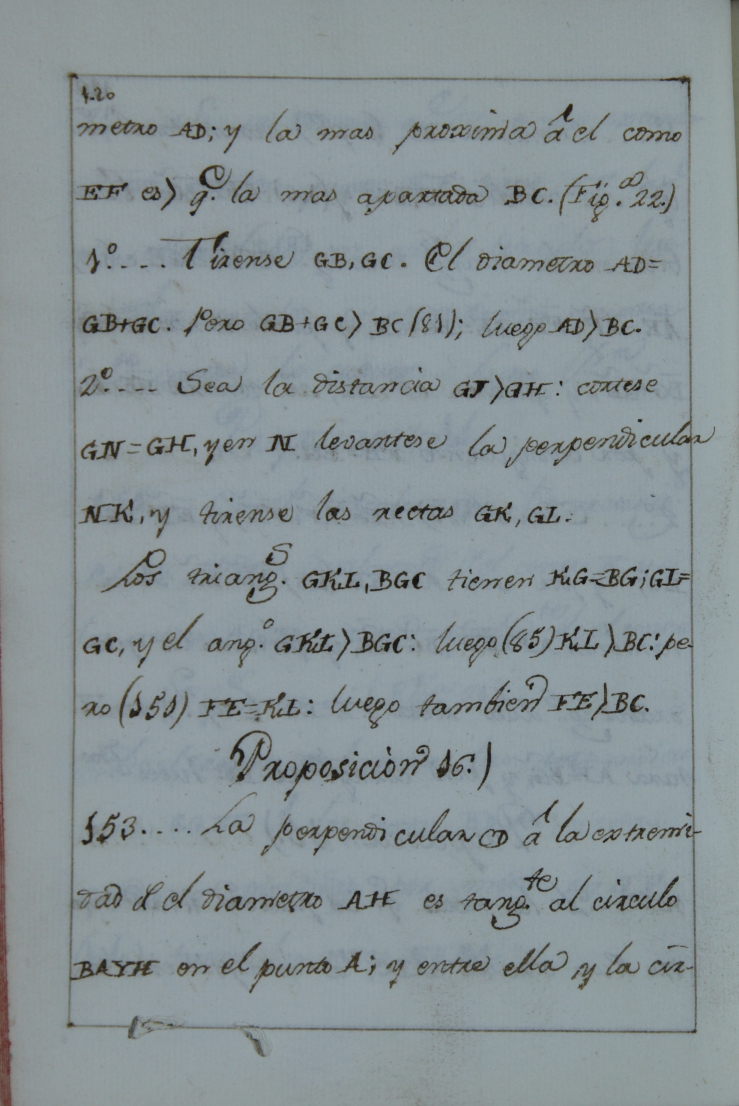 120
metro AD; y la mas proxima â el como
EF es > q.e la mas apartada BC. (Fig.as 22.)
1.º.... Tirense GB, GC. El diametro AD=
GB+GC. Pero GB+GC > BC (81); luego AD > BC.
2.º.... Sea la distancia GI > GH: cortese
GN=GH, y en N levantese la perpendicular
NK, y tirense las rectas GK, GL.
Los triang.s GKL, BGC tienen KG=BG; GL=
GC, y el ang.º GKL > BGC: luego (85) KL > BC: pe-
ro (151) FE=KL: luego tambien FE > BC.
Proposiciòn 16.)
153.... La perpendicular CD â la extremi-
dad d el diametro AH es tang.te al circulo
BAYH en el punto A; y entre ella, y la cir-